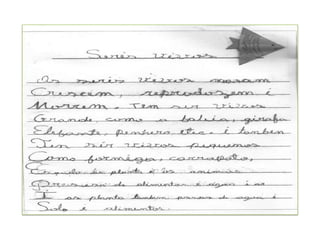 Seris vivos
Os seris vivos nasam
Crescem, reprodusem é
Morrem. Tem ser vivos
Grande, como a baleia, girafa
Elefante, etc. é tanben
Ten ser vivos piquenos
Como formiga, carrapato,
planta é os animais
de alimentos é agua i se
as planta tanben de agua é
Solo e alimentos.